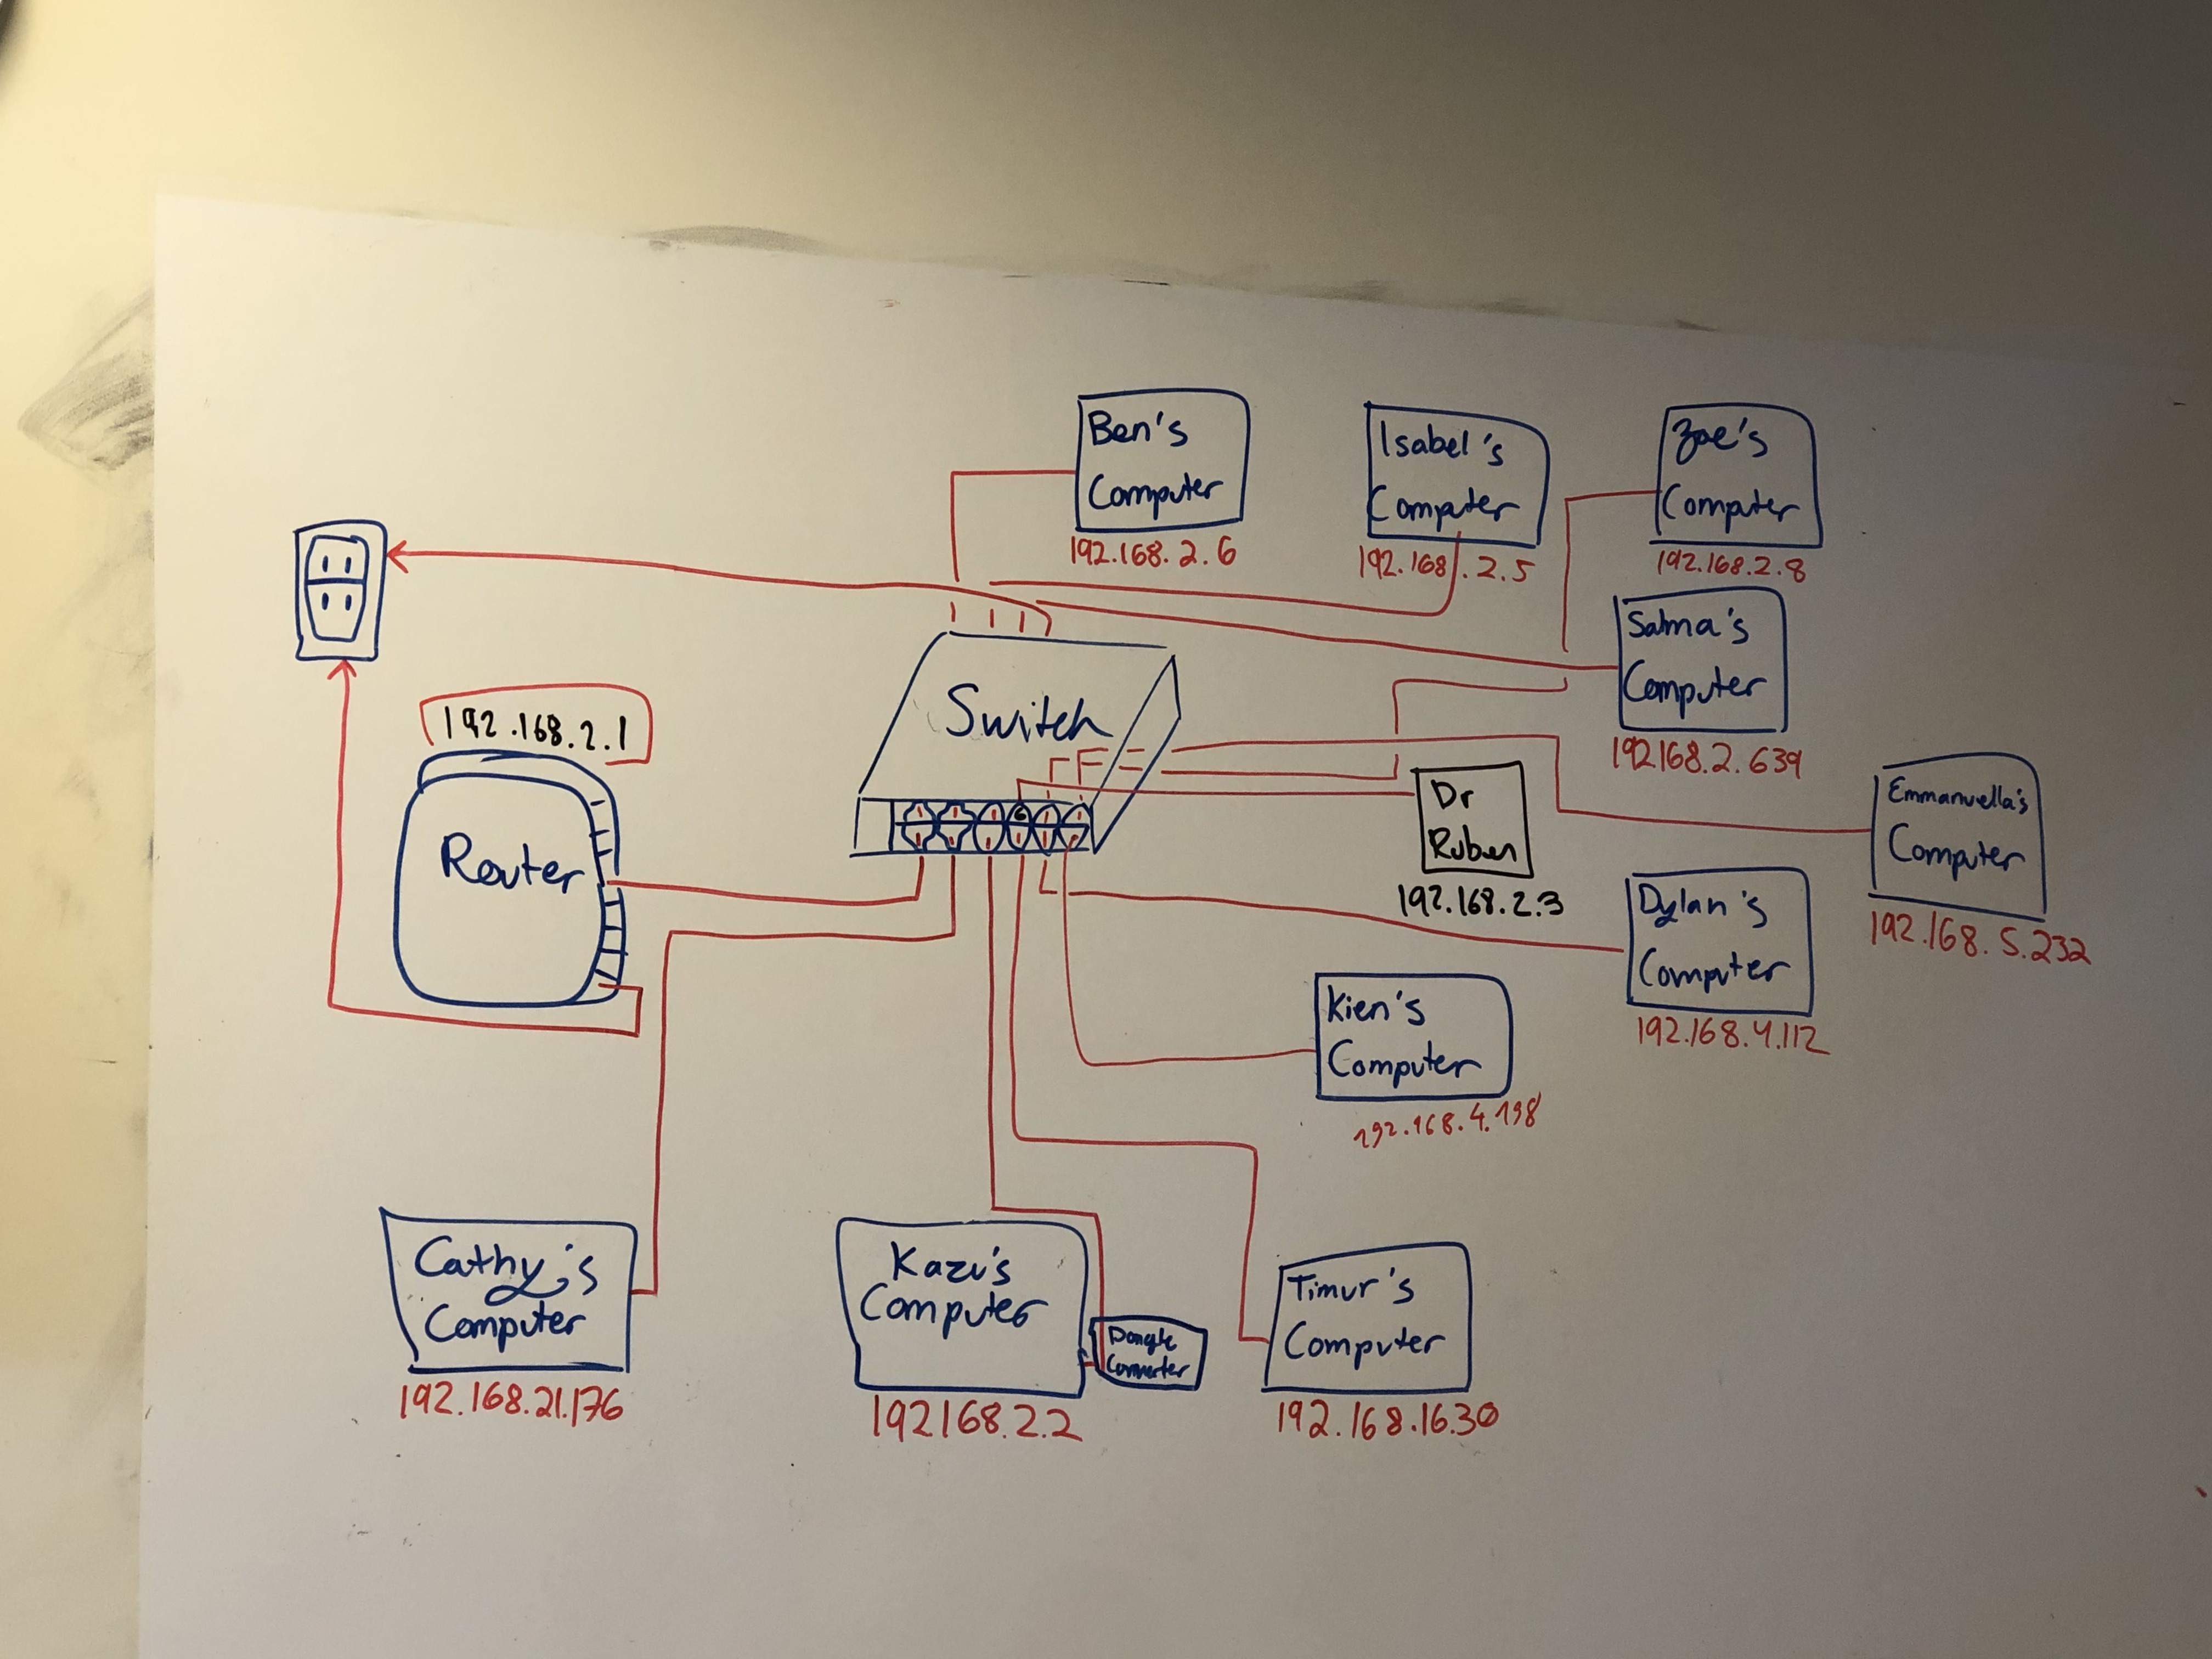 Ben's
Computer
192.168.2.6
Isabel's
Computer
192.168.2.5
Zoe's
Computer
192.168.2.8
Salma's
Computer
192168.2.639
192.168.2.1
Router
Switch
Dr
Ruben
192.168.2.3
Emmanuella's
Computer
192.168.5.232
Dylan's
Computer
192.168.4.112
Kien's
Computer
192.168.4.198
Cathy's
Computer
192.168.21.176
Kazi's
Computer
192168.2.2
Dongle
Converter
Timur's
Computer
192.168.1630